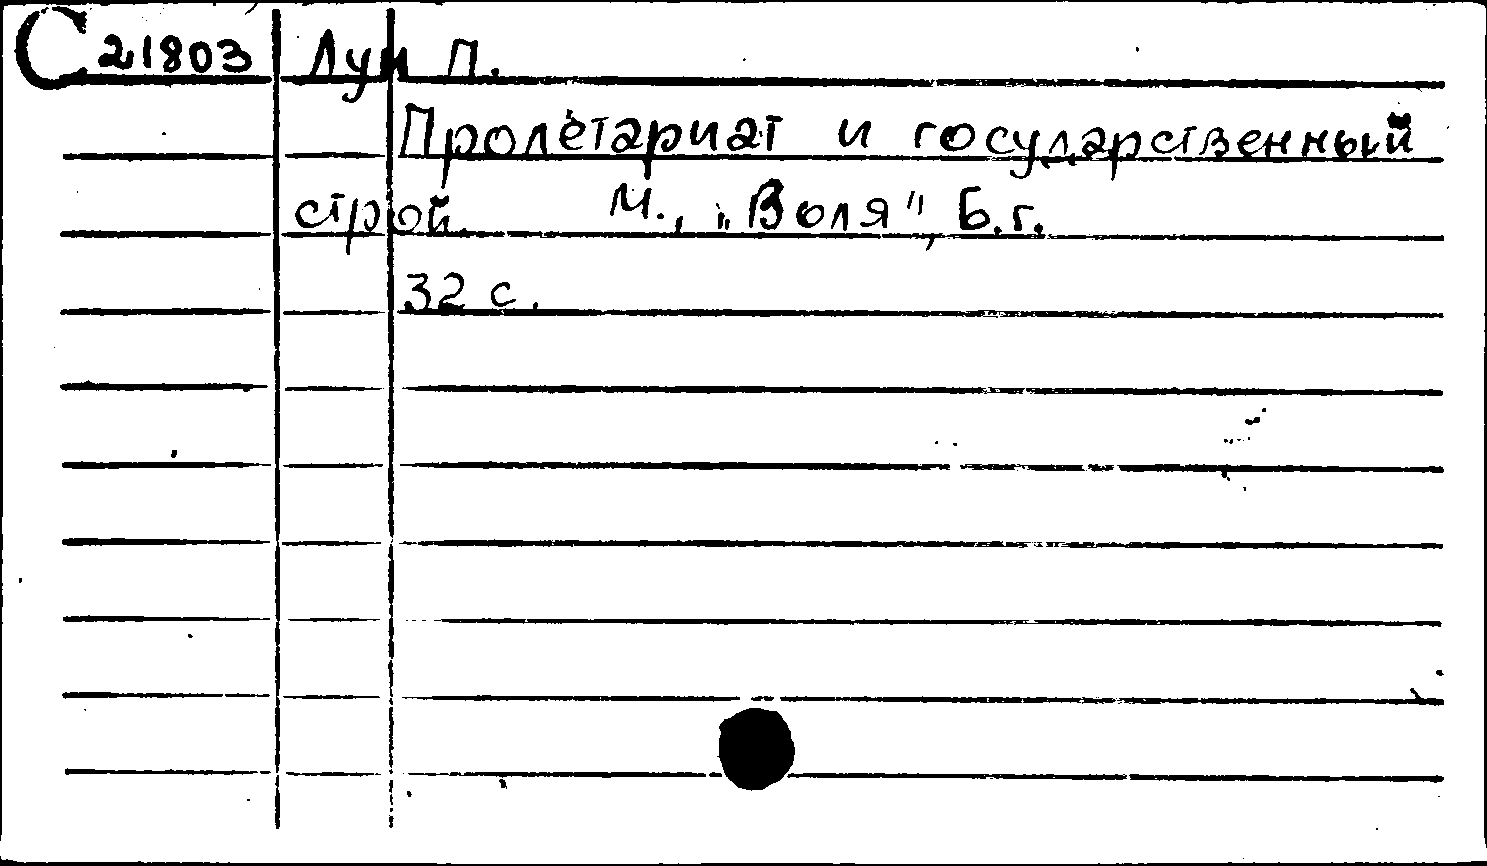 С 21803 Луи П.
Пролетариат и государственный
строй. М., „Воля", Б.г.
32 с.